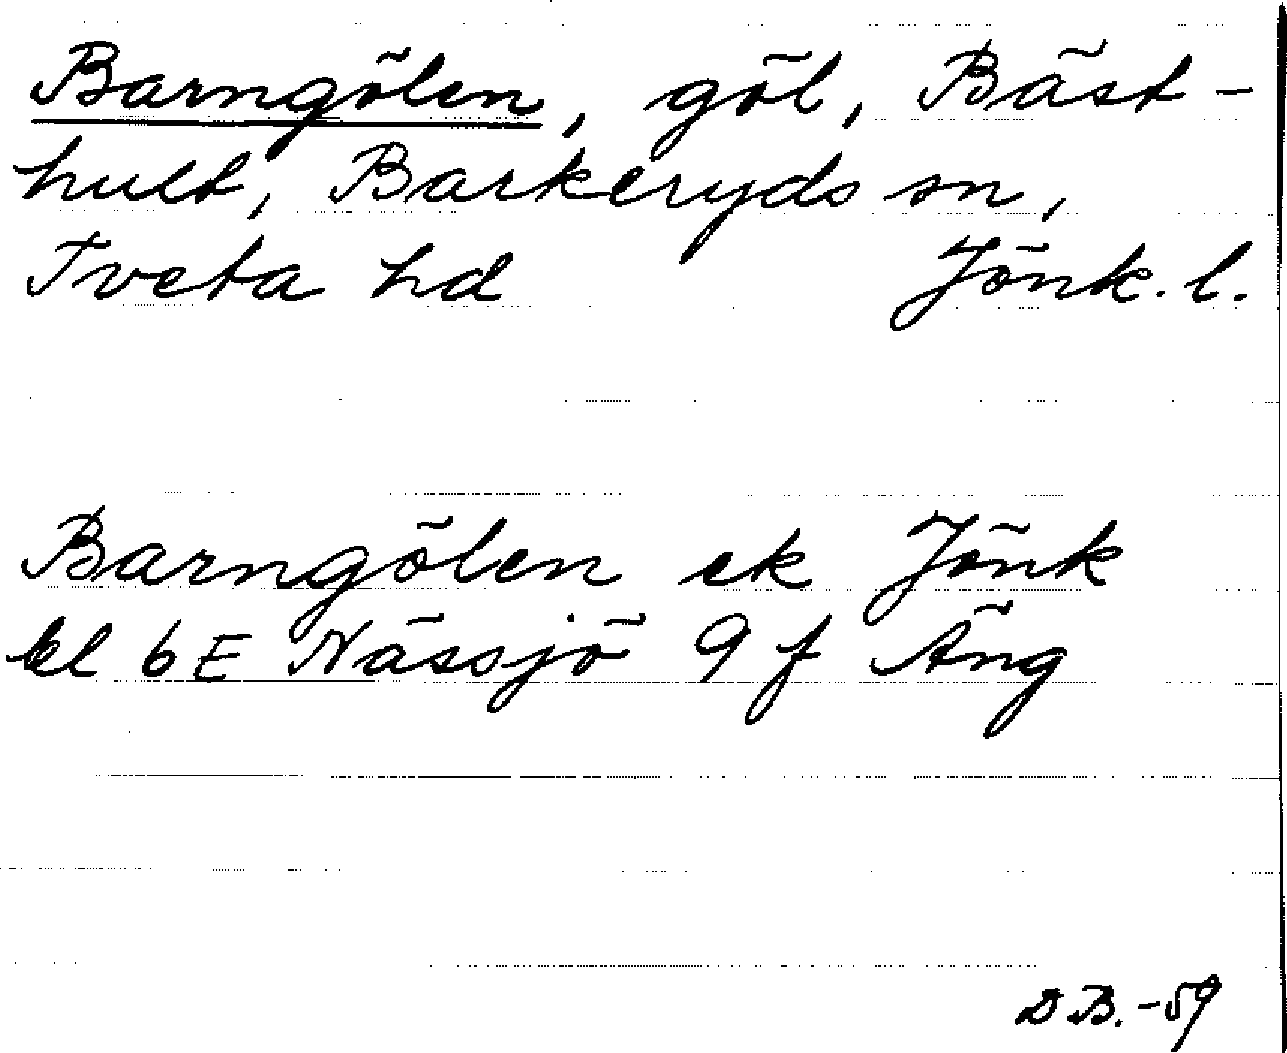 Barngölen, göl, Bäst-
hult, Barkeryds sn,
Tveta hd Jönk. l.
Barngölen ek Jönk
bl 6E Nässjö 9 f Äng
D.B. -59